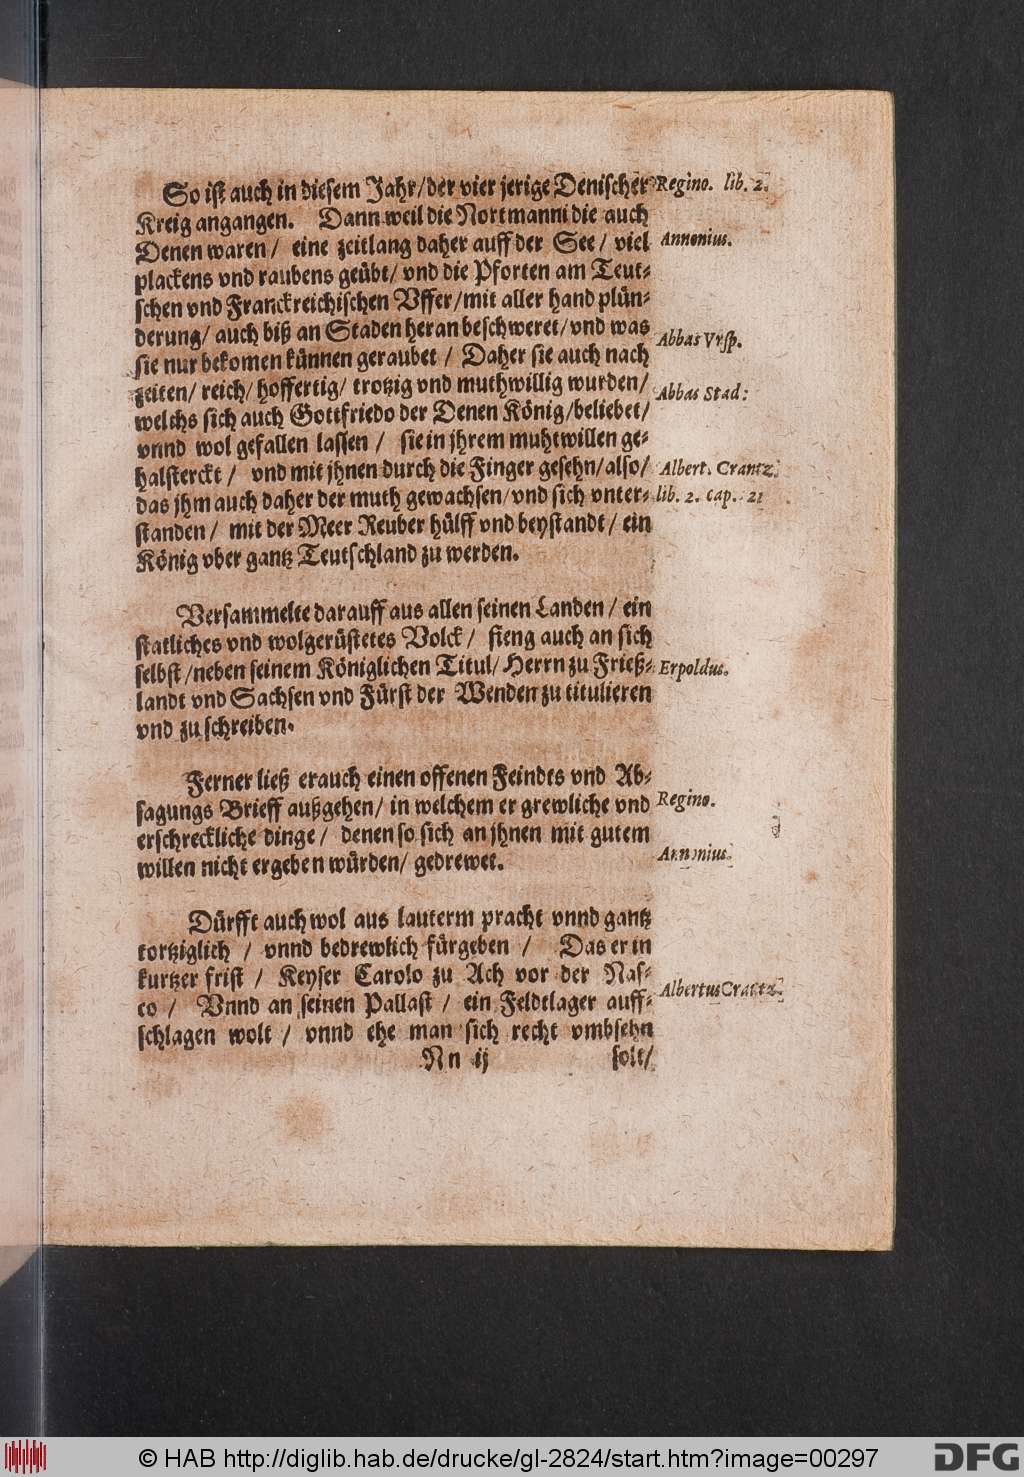 So ist auch in diesem Jahr/der vier jerige Denischer
Regino. lib. 2.
Kreig angangen. Dann weil die Nortmanni die auch
Denen waren/ eine zeitlang daher auff der See/ viel
Annonius.
plackens vnd raubens geübt/ vnd die Pforten am Teut-
schen vnd Franckreichischen Vffer/mit aller hand plün-
derung/ auch biß an Staden heran beschweret/vnd was
Abbas Vrsp.
sie nur bekomen künnen geraubet / Daher sie auch nach
zeiten/ reich/ hoffertig/ trotzig vnd muthwillig wurden/
Abbas Stad:
welchs sich auch Gottfriedo der Denen König/beliebet/
vnnd wol gefallen lassen / sie in jhrem muhtwillen ge-
halsterckt / vnd mit jhnen durch die Finger gesehn/also/
Albert. Crantz.
das jhm auch daher der muth gewachsen/vnd sich vnter-
lib. 2. cap. 21
standen / mit der Meer Reuber hülff vnd beystandt / ein
König vber gantz Teutschland zu werden.
Versammelte darauff aus allen seinen Landen / ein
statliches vnd wolgerüstetes Volck / fieng auch an sich
selbst /neben seinem Königlichen Titul/ Herrn zu Frieß-
Erpoldus.
landt vnd Sachsen vnd Fürst der Wenden zu titulieren
vnd zu schreiben.
Ferner ließ er auch einen offenen Feindts vnd Ab-
sagungs Brieff außgehen/ in welchem er grewliche vnd
Regino.
erschreckliche dinge / denen so sich an jhnen mit gutem
willen nicht ergeben würden/ gedrewet.
Annonius.
Dürfft auch wol aus lauterm pracht vnnd gantz
tortziglich / vnnd bedrewlich fürgeben / Das er in
kurtzer frist / Keyser Carolo zu Ach vor der Nas-
Albertus Crantz.
eo / Vnnd an seinen Pallast / ein Feldtlager auff-
schlagen wolt / vnnd ehe man sich recht vmbsehn
Nn ij solt/
© HAB http://diglib.hab.de/drucke/gl-2824/start.htm?image=00297
DFG